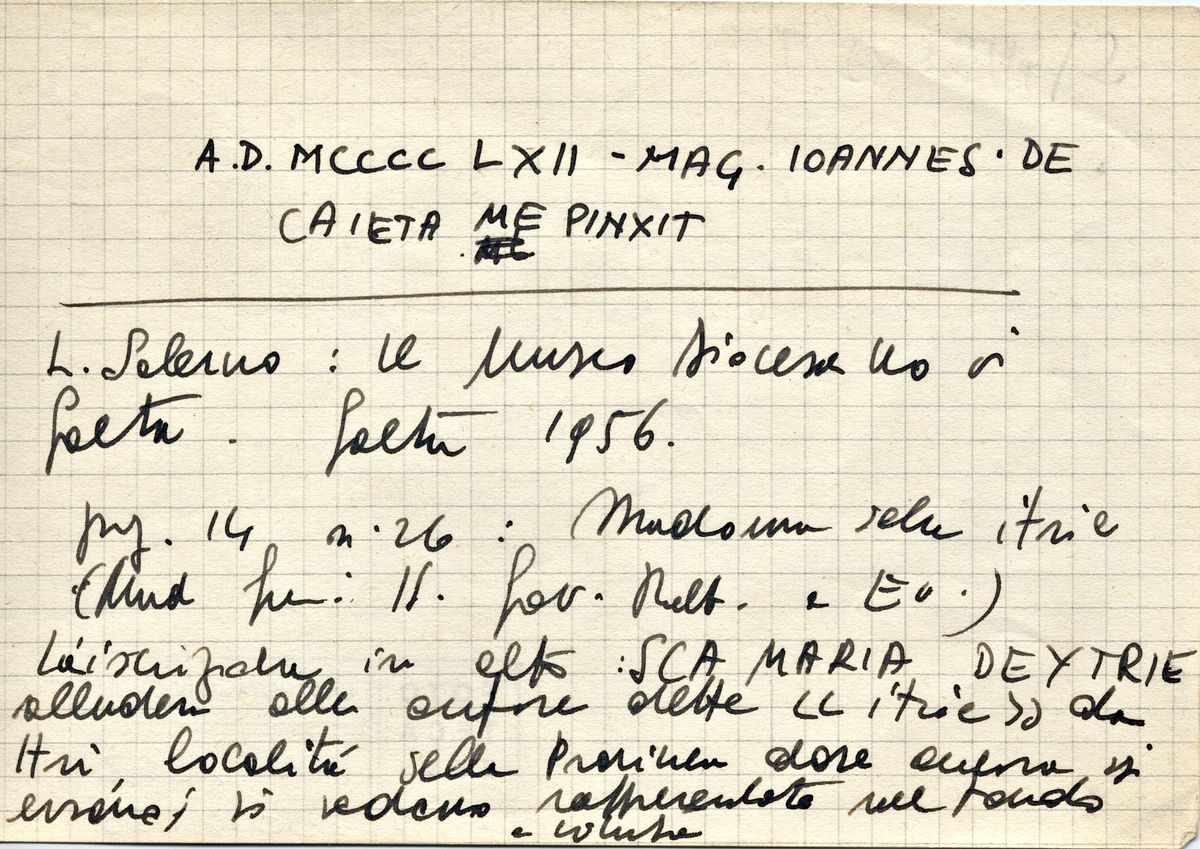 A.D. MCCCC LXII - MAG. IOANNES. DE
CAIETA ME PINXIT
L. Salerno : Il Museo Diocesano di
Gaeta . Gaeta 1956.
pag. 14 n. 26 : Madonna delle itrie
(Mad fra: II. Gov. Batt. e Ev.)
L'iscrizione in alto : SCA MARIA DEYTRIE
alludeva alle anfore dette << itrie >> da
Itri, località della Provincia dove ancora si
; si vedono rappresentate nel fondo
e